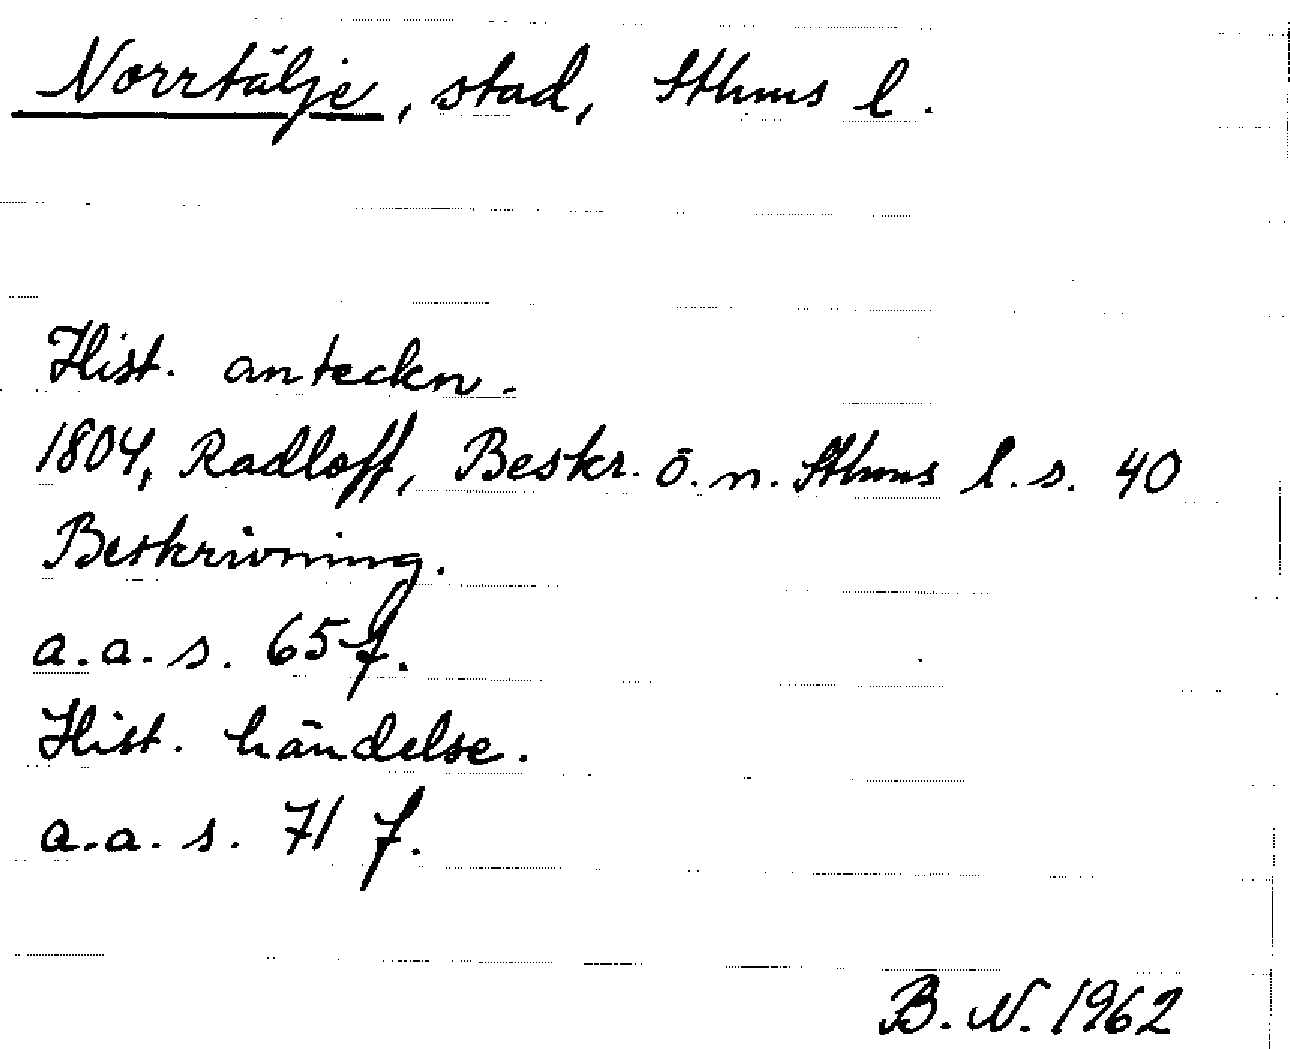 Norrtälje, stad, Sthms l.
Hist. anteckn.
1804, Radloff, Beskr. ö. n. Sthms l. s. 40
Beskrivning.
a.a. s. 65 f.
Hist. händelse.
a.a. s. 71 f.
B. N. 1962